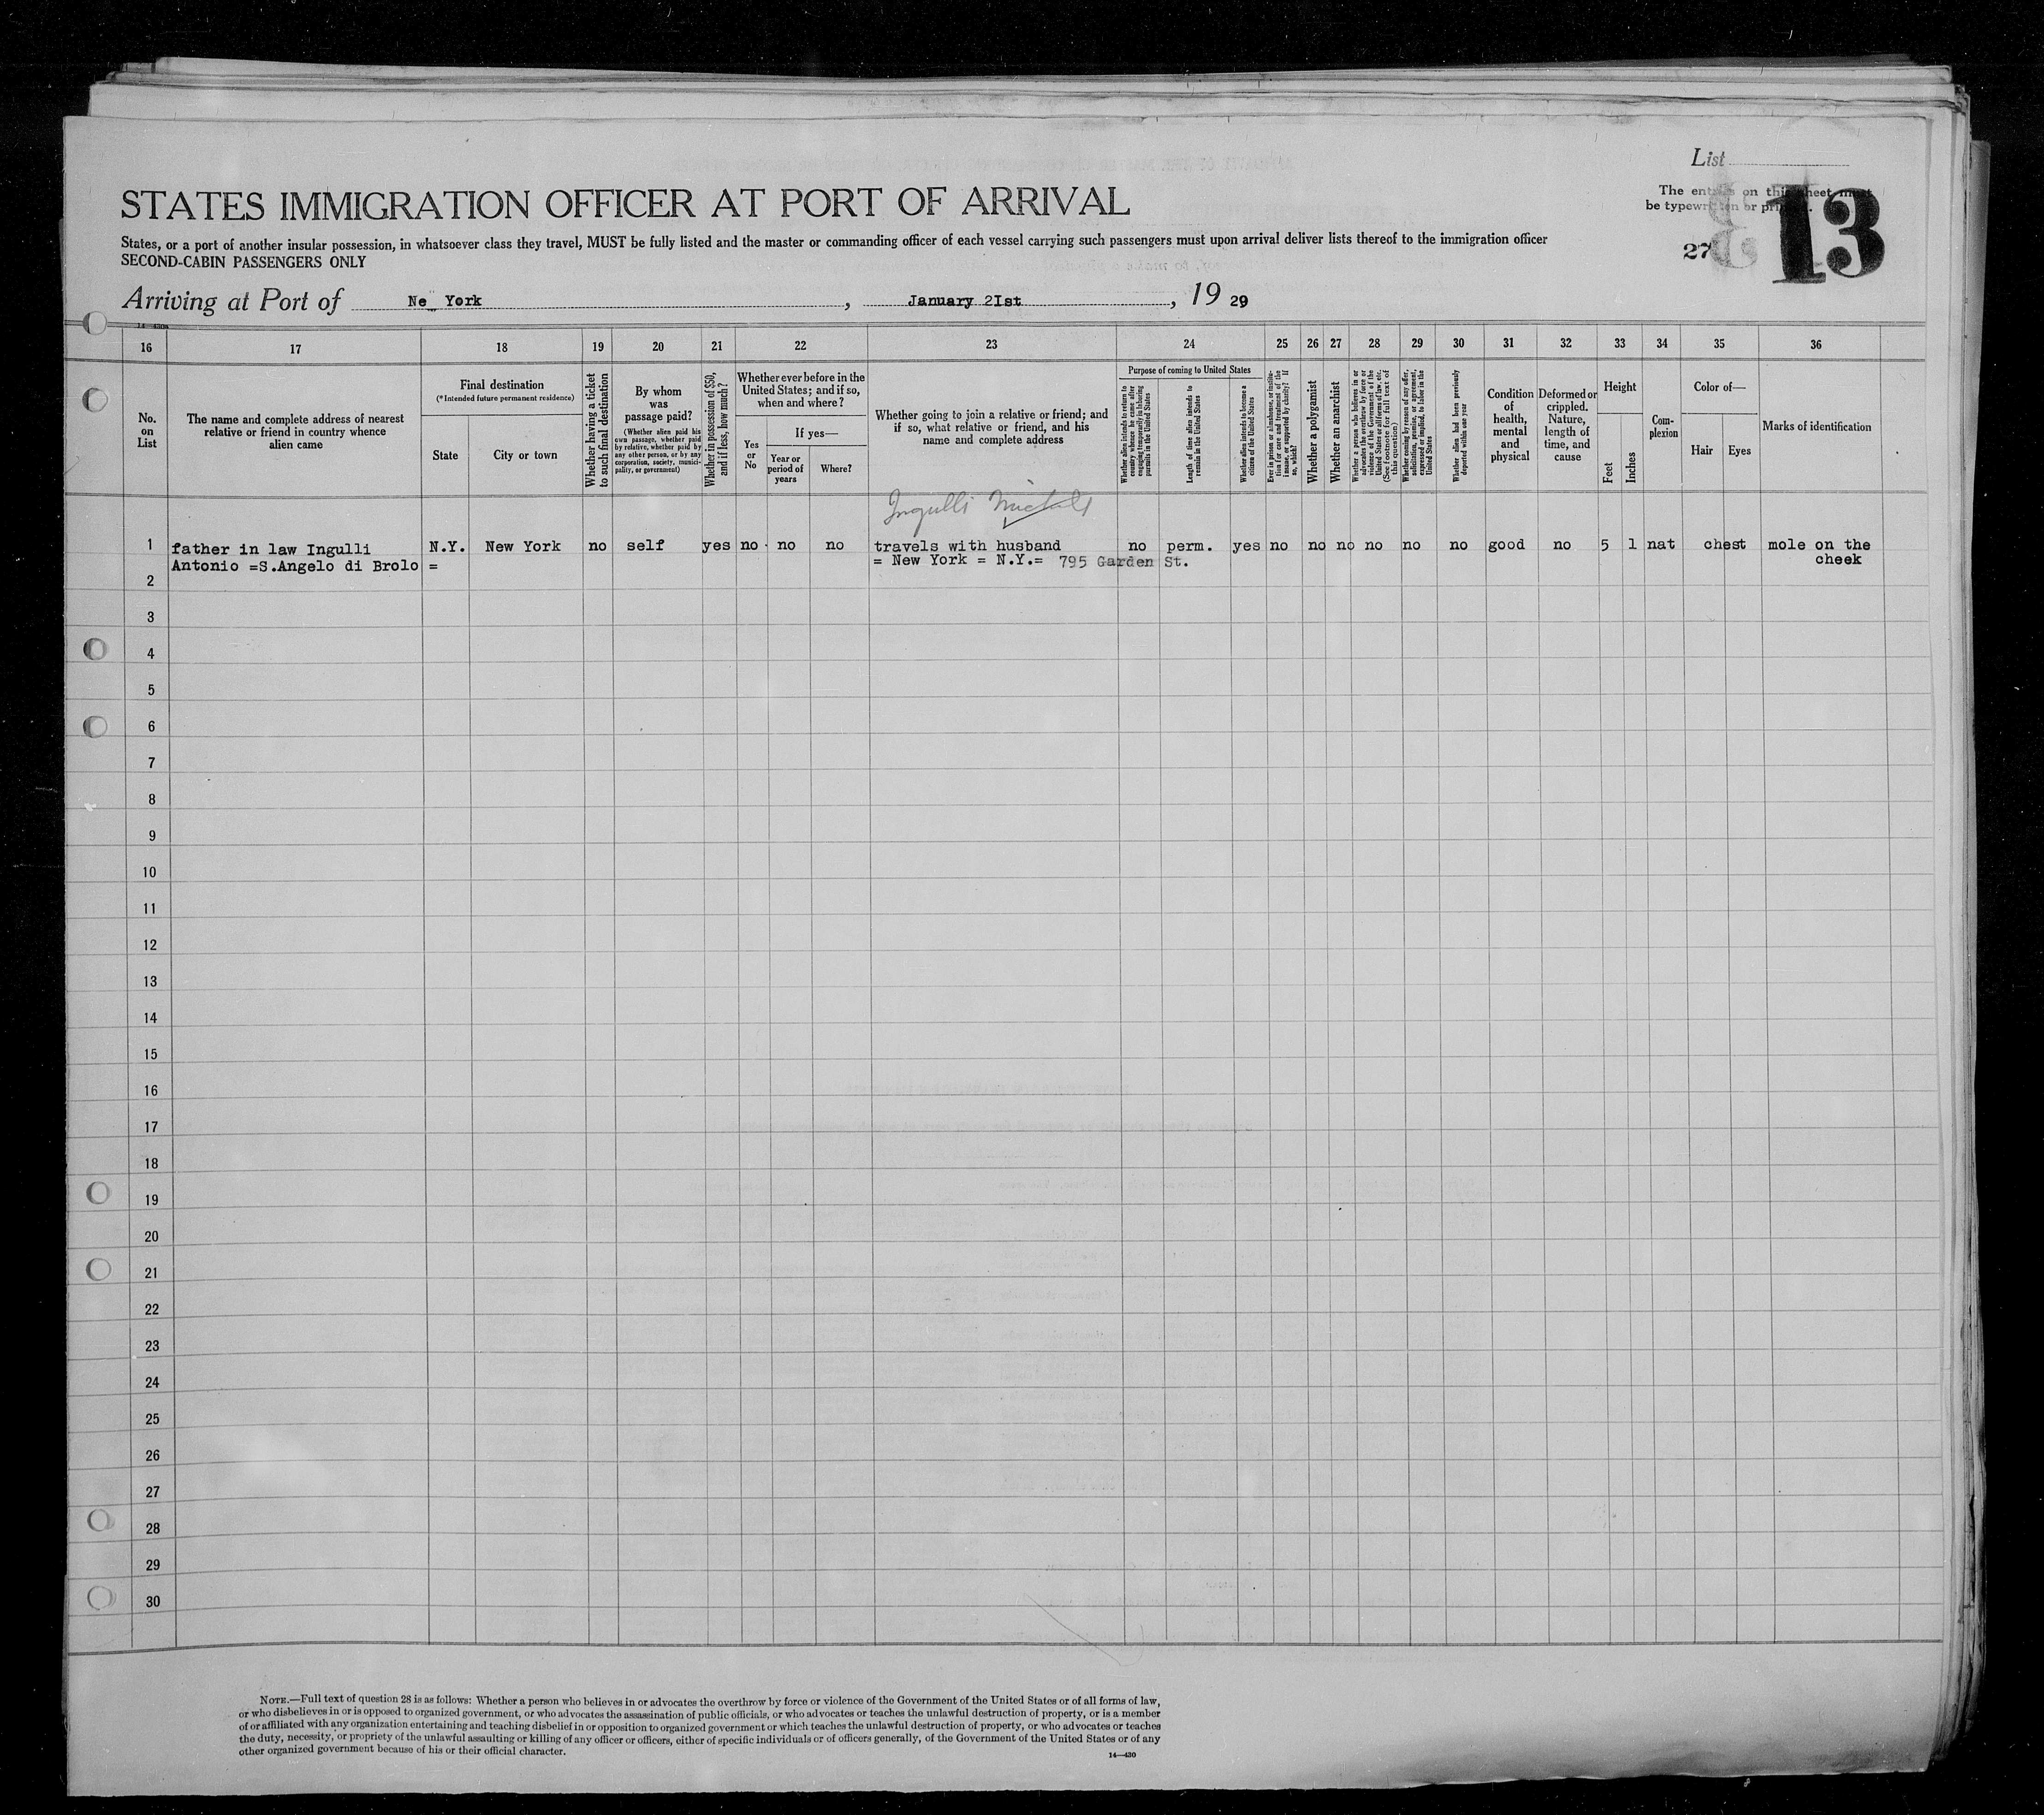 List
The entries on this sheet must
be typewritten or printed.
13
27
STATES IMMIGRATION OFFICER AT PORT OF ARRIVAL
States, or a port of another insular possession, in whatsoever class they travel, MUST be fully listed and the master or commanding officer of each vessel carrying such passengers must upon arrival deliver lists thereof to the immigration officer
SECOND-CABIN PASSENGERS ONLY
Arriving at Port of Ne York, January 2Ist, 19 29
16 17 18 19 20 21 22 23 24 25 26 27 28 29 30 31 32 33 34 35 36
No.
on
List
The name and complete address of nearest
relative or friend in country whence
alien came
Final destination
(*Intended future permanent residence)
State
City or town
Whether having a ticket
to such final destination
By whom
was
passage paid?
(Whether alien paid his
own passage, whether paid
by relative, whether paid by
any other person, or by any
corporation, society, munici-
pality, or government)
Whether in possession of $50,
and if less, how much?
Whether ever before in the
United States; and if so,
when and where?
Yes
or
No
If yes—
Year or
period of
years
Where?
Whether going to join a relative or friend; and
if so, what relative or friend, and his
name and complete address
Purpose of coming to United States
Whether alien intends to return to
country whence he came after
engaging temporarily in laboring
pursuits in the United States
Length of time alien intends to
remain in the United States
Whether alien intends to become a
citizen of the United States
Ever in prison or almshouse, or institu-
tion for care and treatment of the
insane, or supported by charity? If
so, which?
Whether a polygamist
Whether an anarchist
Whether a person who believes in or
advocates the overthrow by force or
violence of the Government of the
United States or all forms of law, etc.
(See footnote for full text of
this question)
Whether coming by reason of any offer,
solicitation, promise, or agreement,
expressed or implied, to labor in the
United States
Whether alien had been previously
deported within one year
Condition
of
health,
mental
and
physical
Deformed or
crippled.
Nature,
length of
time, and
cause
Height
Feet
Inches
Com-
plexion
Color of—
Hair
Eyes
Marks of identification
Ingulli
1 father in law Ingulli N.Y. New York no self yes no no no travels with husband no perm. yes no no no no no no good no 5 1 nat chest mole on the
Antonio =S.Angelo di Brolo = = New York = N.Y.= 795 Garden St. cheek
2
3
4
5
6
7
8
9
10
11
12
13
14
15
16
17
18
19
20
21
22
23
24
25
26
27
28
29
30
NOTE.—Full text of question 28 is as follows: Whether a person who believes in or advocates the overthrow by force or violence of the Government of the United States or of all forms of law,
or who disbelieves in or is opposed to organized government, or who advocates the assassination of public officials, or who advocates or teaches the unlawful destruction of property, or is a member
of or affiliated with any organization entertaining and teaching disbelief in or opposition to organized government or which teaches the unlawful destruction of property, or who advocates or teaches
the duty, necessity, or propriety of the unlawful assaulting or killing of any officer or officers, either of specific individuals or of officers generally, of the Government of the United States or of any
other organized government because of his or their official character.
14—430